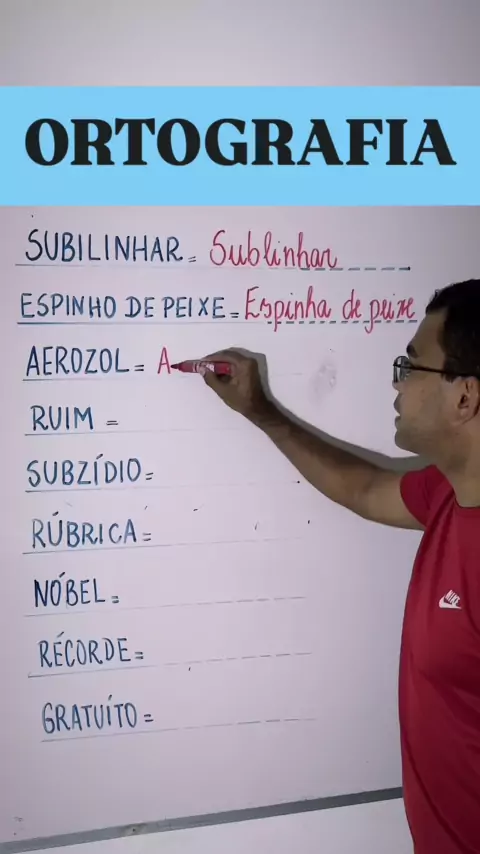 ORTOGRAFIA
SUBILINHAR = Sublinhar
ESPINHO DE PEIXE = Espinha de peixe
AEROZOL = A
RUIM =
SUBZÍDIO =
RÚBRICA =
NÓBEL =
RÉCORDE =
GRATUÍTO =
NIKE